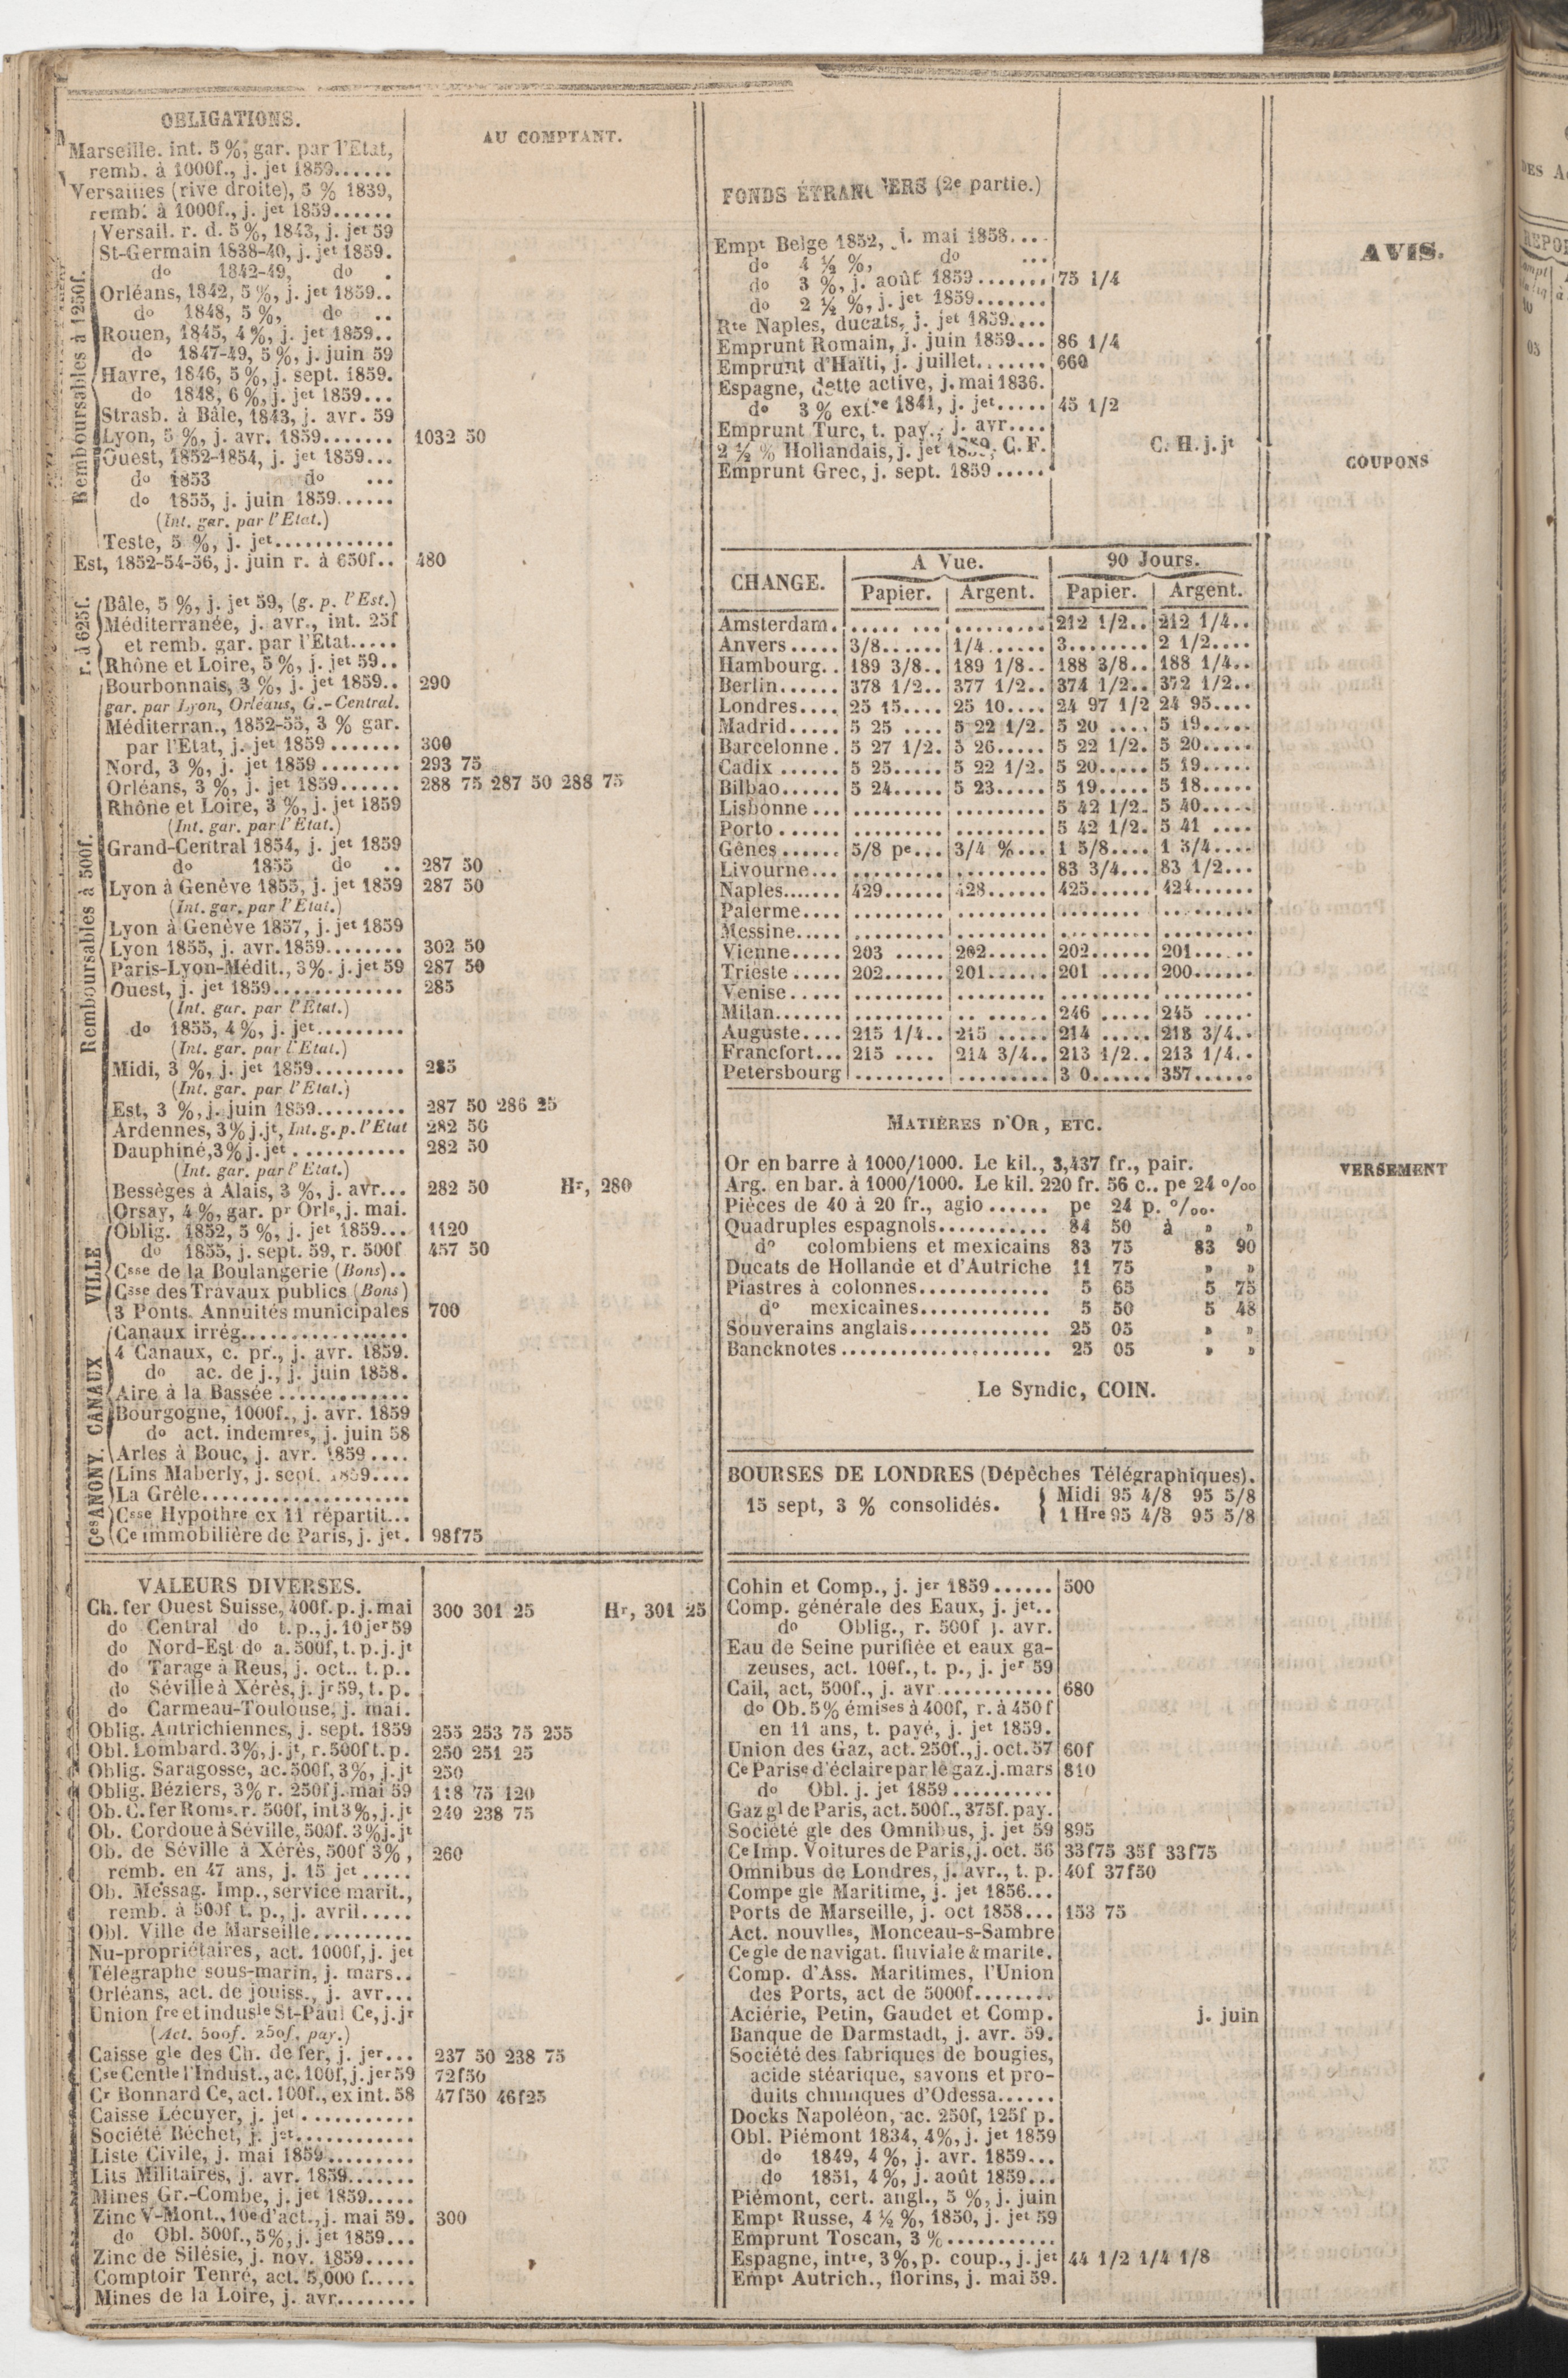 OBLIGATIONS.
AU COMPTANT.
Marseille. int. 5 %, gar. par l'Etat,
remb. à 1000f., j. jet 1859......
Versailles (rive droite), 5 % 1839,
remb. à 1000f., j. jet 1859......
Remboursables à 1250f.
Versail. r. d. 5%, 1843, j. jet 59
St-Germain 1838-40, j. jet 1859.
do 1842-49, do .
Orléans, 1842, 5 %, j. jet 1859..
do 1848, 5 %, do ..
Rouen, 1845, 4 %, j. jet 1859..
do 1847-49, 5 %, j. juin 59
Havre, 1846, 5 %, j. sept. 1859.
do 1848, 6 %, j. jet 1859...
Strasb. à Bâle, 1843, j. avr. 59
Lyon, 5 %, j. avr. 1859....... 1032 50
Ouest, 1852-1854, j. jet 1859...
do 1853 do ...
do 1855, j. juin 1859......
(Int. gar. par l'Etat.)
Teste, 5 %, j. jet............
Est, 1852-54-56, j. juin r. à 650f.. 480
r. à 625f.
Bâle, 5 %, j. jet 59, (g. p. l'Est.)
Méditerranée, j. avr., int. 25f
et remb. gar. par l'Etat.....
Rhône et Loire, 5 %, j. jet 59..
Remboursables à 500f.
Bourbonnais, 3 %, j. jet 1859.. 290
gar. par Lyon, Orléans, G.-Central.
Méditerran., 1852-55, 3 % gar.
par l'Etat, j. jet 1859 ....... 300
Nord, 3 %, j. jet 1859 ........ 293 75
Orléans, 3 %, j. jet 1859...... 288 75 287 50 288 75
Rhône et Loire, 3 %, j. jet 1859
(Int. gar. par l'Etat.)
Grand-Central 1854, j. jet 1859
do 1855 do .. 287 50
Lyon à Genève 1855, j. jet 1859 287 50
(Int. gar. par l'Etat.)
Lyon à Genève 1857, j. jet 1859
Lyon 1855, j. avr. 1859........ 302 50
Paris-Lyon-Médit., 3%. j. jet 59 287 50
Ouest, j. jet 1859............. 285
(Int. gar. par l'Etat.)
do 1855, 4 %, j. jet.........
(Int. gar. par l'Etat.)
Midi, 3 %, j. jet 1859......... 285
(Int. gar. par l'Etat.)
Est, 3 %, j. juin 1859......... 287 50 286 25
Ardennes, 3% j. jt, Int. g. p. l'Etat 282 50
Dauphiné, 3% j. jet ........... 282 50
(Int. gar. par l'Etat.)
Bessèges à Alais, 3 %, j. avr... 282 50 Hr, 280
Orsay, 4 %, gar. pr Orls, j. mai.
VILLE
Oblig. 1852, 5 %, j. jet 1859... 1120
do 1855, j. sept. 59, r. 500f 457 50
Csse de la Boulangerie (Bons)..
Csse des Travaux publics (Bons)
3 Ponts. Annuités municipales 700
CANAUX
Canaux irrég.................
4 Canaux, c. pr., j. avr. 1859.
do ac. de j., j. juin 1858.
Aire à la Bassée .............
Bourgogne, 1000f., j. avr. 1859
do act. indemres, j. juin 58
Arles à Bouc, j. avr. 1859 ....
Ces ANONY.
Lins Maberly, j. sept. 1859....
La Grêle.....................
Csse Hypothre ex 11 répartit...
Ce immobilière de Paris, j. jet. 98f75
VALEURS DIVERSES.
Ch. fer Ouest Suisse, 400f. p. j. mai 300 301 25 Hr, 301 25
do Central do t. p., j. 10 jer 59
do Nord-Est do a. 500f, t. p. j. jt
do Tarage à Reus, j. oct.. t. p..
do Séville à Xérès, j. jr 59, t. p.
do Carmeau-Toulouse, j. mai.
Oblig. Autrichiennes, j. sept. 1859 255 253 75 255
Obl. Lombard. 3%, j. jt, r. 500f t. p. 250 251 25
Oblig. Saragosse, ac. 500f, 3%, j. jt 250
Oblig. Béziers, 3% r. 250f j. mai 59 118 75 120
Ob. C. fer Roms. r. 500f, int 3%, j. jt 240 238 75
Ob. Cordoue à Séville, 500f. 3% j. jt
Ob. de Séville à Xérès, 500f 3%, 260
remb. en 47 ans, j. 15 jet .....
Ob. Messag. Imp., service marit.,
remb. à 500f t. p., j. avril.....
Obl. Ville de Marseille..........
Nu-propriétaires, act. 1000f, j. jet
Télégraphe sous-marin, j. mars..
Orléans, act. de jouiss., j. avr...
Union fre et indusle St-Paul Ce, j. jr
(Act. 500f. 250f. pay.)
Caisse gle des Ch. de fer, j. jer... 237 50 238 75
Cse Centle l'Indust., ac. 100f, j. jer 59 72f50
Cr Bonnard Ce, act. 100f., ex int. 58 47f50 46f25
Caisse Lécuyer, j. jet ...........
Société Béchet, j. jet............
Liste Civile, j. mai 1859.........
Lits Militaires, j. avr. 1859.......
Mines Gr.-Combe, j. jet 1859.....
Zinc V-Mont., 10e d'act., j. mai 59. 300
do Obl. 500f., 5%, j. jet 1859...
Zinc de Silésie, j. nov. 1859.....
Comptoir Tenré, act. 5,000 f.....
Mines de la Loire, j. avr........
FONDS ÉTRANGERS (2e partie.)
Empt Belge 1852, j. mai 1858....
do 4 ½ %, do ...
do 3 %, j. août 1859....... 75 1/4
do 2 ½ %, j. jet 1859.......
Rte Naples, ducats, j. jet 1859....
Emprunt Romain, j. juin 1859... 86 1/4
Emprunt d'Haïti, j. juillet....... 660
Espagne, dette active, j. mai 1836.
do 3 % extre 1841, j. jet..... 45 1/2
Emprunt Turc, t. pay., j. avr....
2 ½ % Hollandais, j. jet 1859, C. F. C. H. j. jt
Emprunt Grec, j. sept. 1859 .....
CHANGE. A Vue. 90 Jours.
Papier. Argent. Papier. Argent.
Amsterdam. ..... ... ......... 212 1/2.. 212 1/4..
Anvers ..... 3/8....... 1/4 ...... 3........ 2 1/2....
Hambourg.. 189 3/8.. 189 1/8.. 188 3/8.. 188 1/4..
Berlin...... 378 1/2.. 377 1/2.. 374 1/2.. 372 1/2..
Londres.... 25 15.... 25 10.... 24 97 1/2 24 95....
Madrid..... 5 25 .... 5 22 1/2. 5 20 .... 5 19.....
Barcelonne. 5 27 1/2. 5 26..... 5 22 1/2. 5 20.....
Cadix ...... 5 25..... 5 22 1/2. 5 20..... 5 19.....
Bilbao...... 5 24..... 5 23..... 5 19..... 5 18.....
Lisbonne ... ......... ......... 5 42 1/2. 5 40.....
Porto ...... ......... ......... 5 42 1/2. 5 41 ....
Gênes ...... 5/8 pe... 3/4 %... 1 5/8.... 1 3/4....
Livourne... ......... ......... 83 3/4... 83 1/2...
Naples....... 429...... 428...... 425...... 424......
Palerme.... ......... ......... ........ .........
Messine..... ......... ......... ......... .........
Vienne..... 203 ..... 202...... 202...... 201......
Trieste ..... 202...... 201...... 201 ..... 200......
Venise..... ......... ......... ......... .........
Milan....... ......... ......... 246 ..... 245 .....
Auguste.... 215 1/4.. 215 ..... 214 ..... 213 3/4..
Francfort... 215 .... 214 3/4.. 213 1/2.. 213 1/4..
Petersbourg ......... ......... 3 0...... 357......
MATIÈRES D'OR, ETC.
Or en barre à 1000/1000. Le kil., 3,437 fr., pair.
Arg. en bar. à 1000/1000. Le kil. 220 fr. 56 c.. pe 24 o/oo
Pièces de 40 à 20 fr., agio ...... pe 24 p. o/oo.
Quadruples espagnols........... 84 50 à » »
do colombiens et mexicains 83 75 83 90
Ducats de Hollande et d'Autriche 11 75 » »
Piastres à colonnes............. 5 65 5 75
do mexicaines............. 5 50 5 48
Souverains anglais.............. 25 05 » »
Bancknotes..................... 25 05 » »
Le Syndic, COIN.
BOURSES DE LONDRES (Dépêches Télégraphiques).
15 sept, 3 % consolidés. Midi 95 4/8 95 5/8
1 Hre 95 4/8 95 5/8
Cohin et Comp., j. jer 1859...... 500
Comp. générale des Eaux, j. jet..
do Oblig., r. 500f j. avr.
Eau de Seine purifiée et eaux ga-
zeuses, act. 100f., t. p., j. jer 59
Cail, act, 500f., j. avr ........... 680
do Ob. 5% émises à 400f, r. à 450f
en 11 ans, t. payé, j. jet 1859.
Union des Gaz, act. 250f., j. oct. 57 60f
Ce Parise d'éclaire par le gaz. j. mars 810
do Obl. j. jet 1859..........
Gaz gl de Paris, act. 500f., 375f. pay.
Société gle des Omnibus, j. jet 59 895
Ce Imp. Voitures de Paris, j. oct. 56 33f75 35f 33f75
Omnibus de Londres, j. avr., t. p. 40f 37f50
Compe gle Maritime, j. jet 1856...
Ports de Marseille, j. oct 1858... 153 75
Act. nouvlles, Monceau-s-Sambre
Ce gle de navigat. fluviale & marite.
Comp. d'Ass. Maritimes, l'Union
des Ports, act de 5000f........
Aciérie, Petin, Gaudet et Comp. j. juin
Banque de Darmstadt, j. avr. 59.
Société des fabriques de bougies,
acide stéarique, savons et pro-
duits chimiques d'Odessa......
Docks Napoléon, ac. 250f, 125f p.
Obl. Piémont 1834, 4%, j. jet 1859
do 1849, 4 %, j. avr. 1859...
do 1851, 4 %, j. août 1859...
Piémont, cert. angl., 5 %, j. juin
Empt Russe, 4 ½ %, 1850, j. jet 59
Emprunt Toscan, 3 % ...........
Espagne, intre, 3%, p. coup., j. jet 44 1/2 1/4 1/8
Empt Autrich., florins, j. mai 59.
AVIS.
COUPONS
VERSEMENT